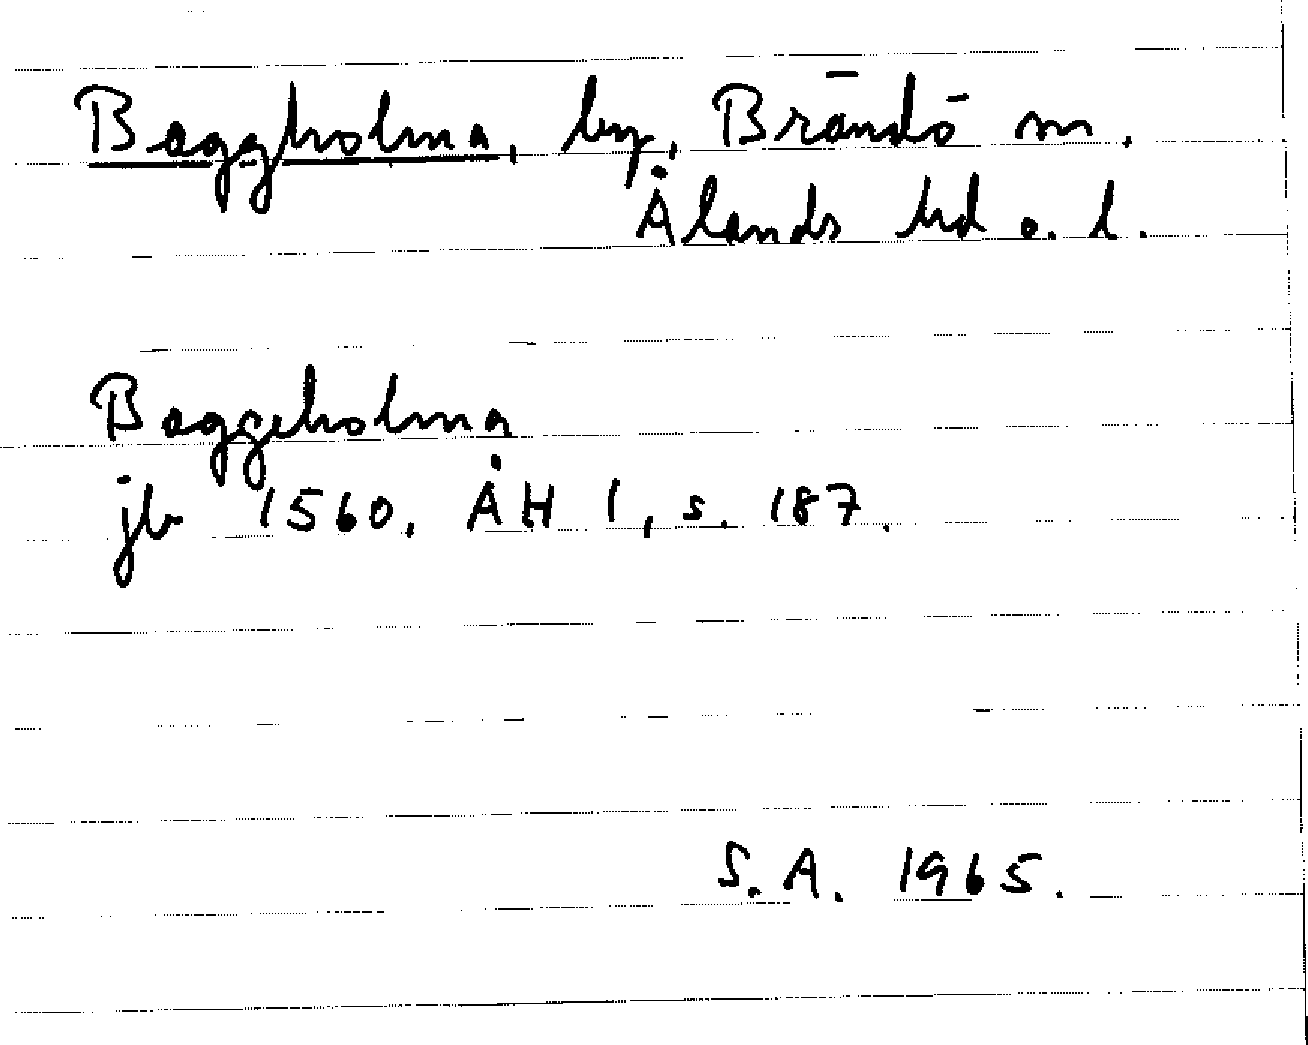 Baggholma, by, Brändö sn.
Ålands hd o. l.
Baggeholma
jb 1560, ÅH 1, s. 187.
S.A. 1965.